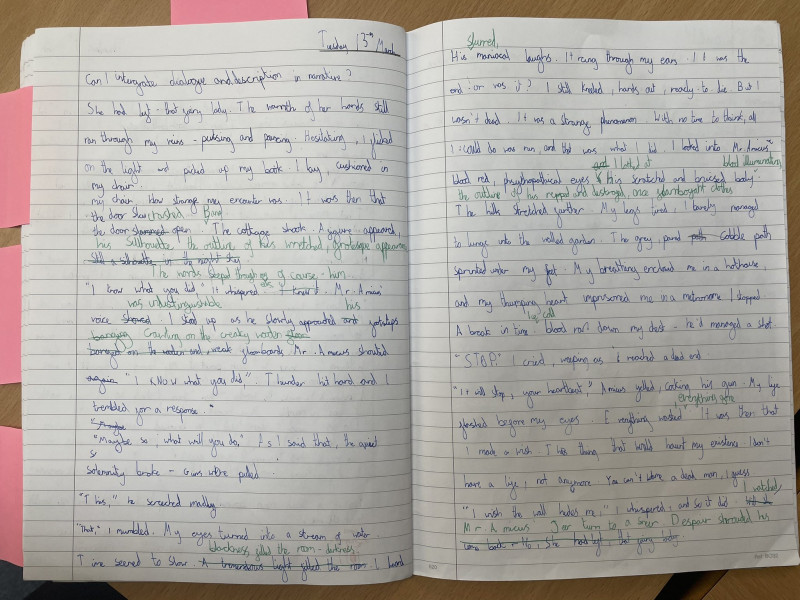 Tuesday 13th March
Can I intergrate dialogue and description in narrative?
She had left - that young lady. The warmth of her hands still
ran through my veins - pulsing and pouncing. Hesitating, I flicked
on the light and picked up my book. I lay, cushioned in
my chair.
my chair. How strange my encounter was. It was then that
the door crashed. Bang
the door slammed open. The cottage shook. A figure appeared,
his silhouette, the outline of his wretched, grotesque appearance
still a silhouette in the night sky
The words seeped through of course - him.
"I know what you did," it whispered. I knew it. Mr. Amicus'
was indistinguishable his
voice. I stood up as he slowly approached footsteps
Crawling on the creaky wooden
on the wooden and, weak floorboards. Mr. Amicus shouted
again "I KNOW what you did". Thunder hit hard and I
trembled for a response."
"Maybe
"Maybe so, what will you do," As I said that, the quiet
solemnity broke - Guns were pulled.
"This," he screeched madly
"That," I mumbled. My eyes turned into a stream of water
blackness filled the room - darkness.
Time seemed to slow. A tremendous light filled the room I heard
slurred,
His maniacal laughs. It rang through my ears. It was the
end - or was it? I still kneeled, hands out, ready to die. But I
wasn't dead. It was a strange phenomenon. With no time to think, all
I could do was run, and that was what I did. I looked into Mr. Amicus'
and I looked at blood illuminating
blood red, phsycopathical eyes & his scratched and bruised body.
the outline of his ripped and destroyed, once flamboyant clothes
The hills stretched further. My legs tired, I barely managed
to lunge into the walled garden. The grey, paved path cobble path
sprinted under my feet. My breathing enchased me in a hothouse,
and my thumping heart imprisoned me in a metronome. I stopped
A break in time - blood ran down my desk - he'd managed a shot.
"STOP." I cried, weeping as I reached a dead end
"It will stop, your heartbeat," Amicus yelled, cocking his gun. My life
everything gone
flashed before my eyes. Everything wasted. It was then that
I made a wish. The thing that would haunt my existence. I don't
have a life, not anymore. You can't blame a dead man, I guess.
I watched,
"I wish the wall hides me," I whispered, and so it did.
Mr Amicus' turn to a Despair shrouded his
come back - No, she had left, that young lady.